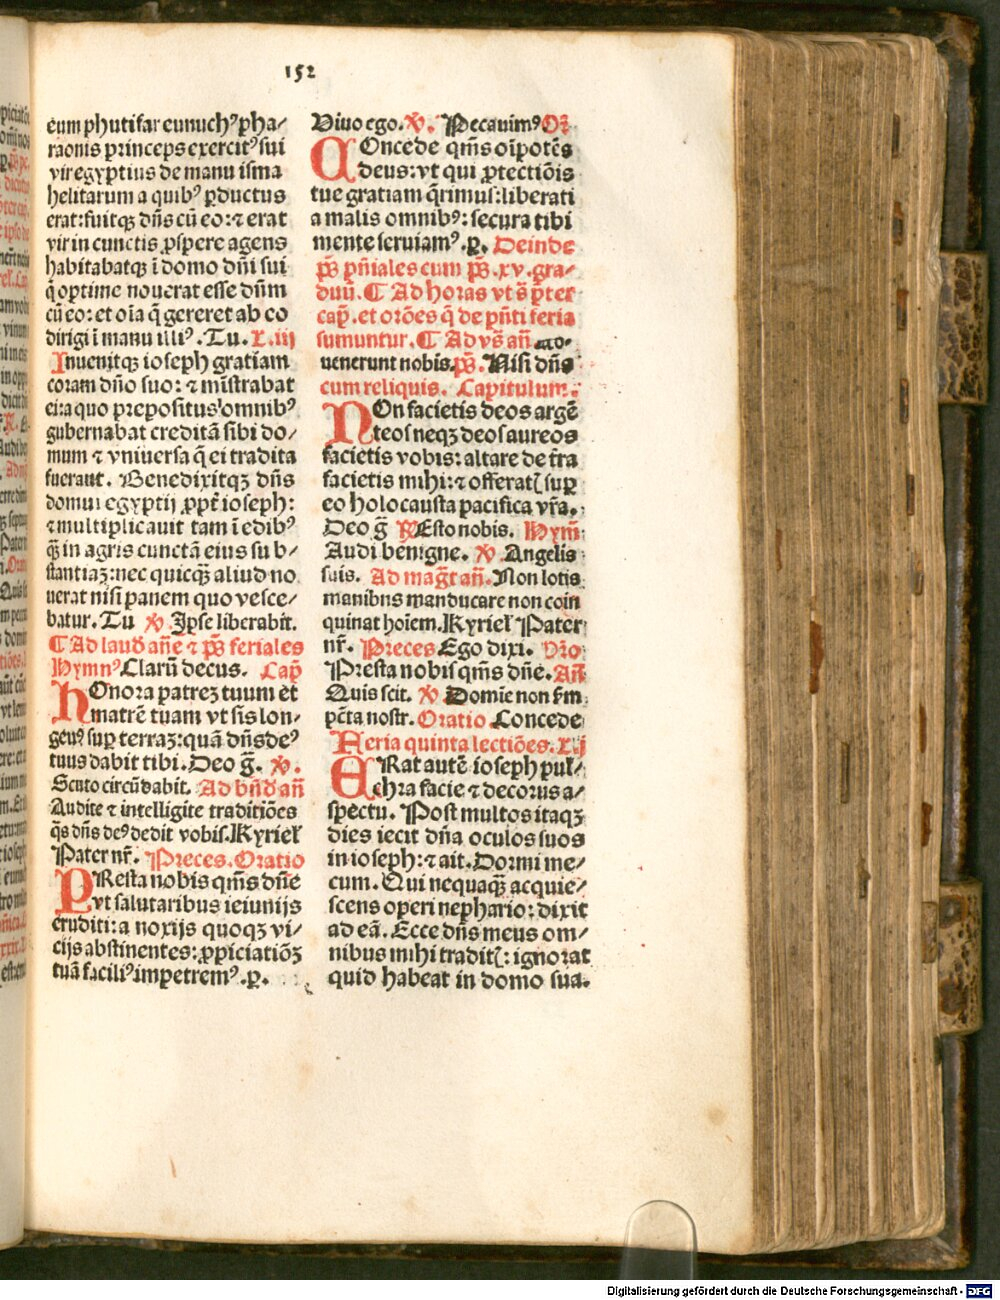 152
eum phutifar eunuchꝰ pha⸗
raonis princeps exercitꝰ sui
vir egyptius de manu isma
helitarum a quibꝰ ꝑductus
erat: fuitqꝫ dñs cū eo: ⁊ erat
vir in cunctis ꝓspere agens
habitabatqꝫ ī domo dñi sui
q̇ optime nouerat esse dñm
cū eo: et oīa q̄ gereret ab eo
dirigi ī manu illiꝰ. Tu. L. iij
Inuenitqꝫ ioseph gratiam
coram dño suo: ⁊ mīstrabat
ei: a quo prepositusꝰ omnibꝰ
gubernabat creditā sibi do⸗
mum ⁊ vniuersa q̄ ei tradita
fuerant. Benedixitqꝫ dñs
domui egyptij ꝓpt̄ ioseph:
⁊ multiplicauit tam ī edibꝰ
q̄ꝫ in agris cunctā eius sub⸗
stantiaꝫ: nec quicq̄ꝫ aliud no
uerat nisi panem quo vesce⸗
batur. Tu ꝟ. Ipse liberabit.
¶ Ad laud̄ añe ⁊ p̄s feriales
Hymnꝰ Clarū decus. Cap̄
HOnora patreꝫ tuum et
matrē tuam vt sis lon⸗
geuꝰ suꝑ terraꝫ: quā dñs deꝰ
tuus dabit tibi. Deo g̃. ꝟ.
Scuto circūdabit. Ad bñd̄ añ
Audite ⁊ intelligite traditiōes
q̄s dñs deꝰ dedit vobis. Kyriel̄
Pater nr̄. Preces. Oratio
PResta nobis qm̄s dñe
vt salutaribus ieiunijs
eruditi: a noxijs quoqꝫ vi⸗
cijs abstinentes: ꝓpiciatiōꝫ
tuā faciliꝰ impetremꝰ. ꝑ.
Viuo ego. ꝟ. Pecauimꝰ Or̄
COncede qm̄s oīpotēs
deus: vt qui ꝓtectiōis
tue gratiam q̄rimus: liberati
a malis omnibꝰ: secura tibi
mente seruiamꝰ. ꝑ. Deinde
p̄s pñiales cum p̄s. xv. gra⸗
duū. ¶ Ad horas vt s̄ p̄ter
cap̄. et orōes q̄ de pñti feria
sumuntur. ¶ Ad vs̄ añ ao⸗
uenerunt nobis. p̄s. Nisi dñs
cum reliquis. Capitulum.
NOn facietis deos argē
teos neqꝫ deos aureos
facietis vobis: altare de t̄ra
facietis mihi: ⁊ offeratꝭ suꝑ
eo holocausta pacifica vr̄a.
Deo g̃ ℟ Esto nobis. Hym̄
Audi benigne. ꝟ. Angelis
suis. Ad mag̃t añ. Non lotis
manibns manducare non coin
quinat hoīem. Kyriel̄ Pater
nr̄. Preces Ego dixi. Oro
Presta nobis qm̄s dñe. Añ
Quis scit. ꝟ Domīe non s̄m
pc̄ta nostr. Oratio Concede
Feria quinta lectiōes. L. j
ERat autē ioseph pul⸗
chra facie ⁊ decorus a⸗
spectu. Post multos itaqꝫ
dies iecit dña oculos suos
in ioseph: ⁊ ait. Dormi me⸗
cum. Qui nequaq̄ꝫ acquie⸗
scens operi nephario: dixit
ad eā. Ecce dñs meus om⸗
nibus mihi traditꝭ: ignorat
quid habeat in domo sua.
Digitalisierung gefördert durch die Deutsche Forschungsgemeinschaft - DFG